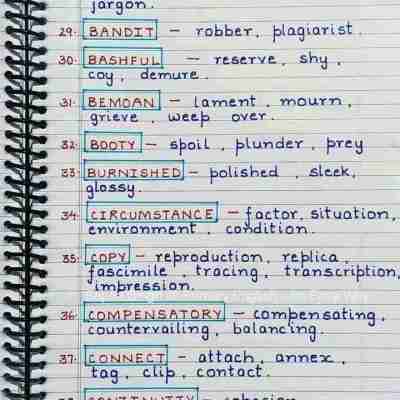 jargon.
29. BANDIT - robber, plagiarist.
30. BASHFUL - reserve, shy,
coy, demure.
31. BEMOAN - lament, mourn,
grieve, weep over.
32. BOOTY - spoil, plunder, prey
33. BURNISHED - polished, sleek,
glossy.
34. CIRCUMSTANCE - factor, situation,
environment, condition.
35. COPY - reproduction, replica,
fascimile, tracing, transcription,
impression.
36. COMPENSATORY - compensating,
countervailing, balancing.
37. CONNECT - attach, annex,
tag, clip, contact.
38. CONTINUITY - cohesion